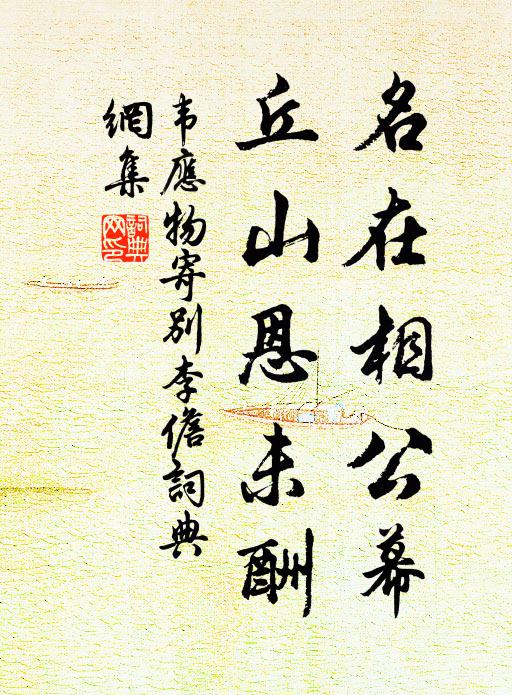 名在相公幕
丘山恩未酬
韦應物寄别李儋詞典
網集
詞典
网印